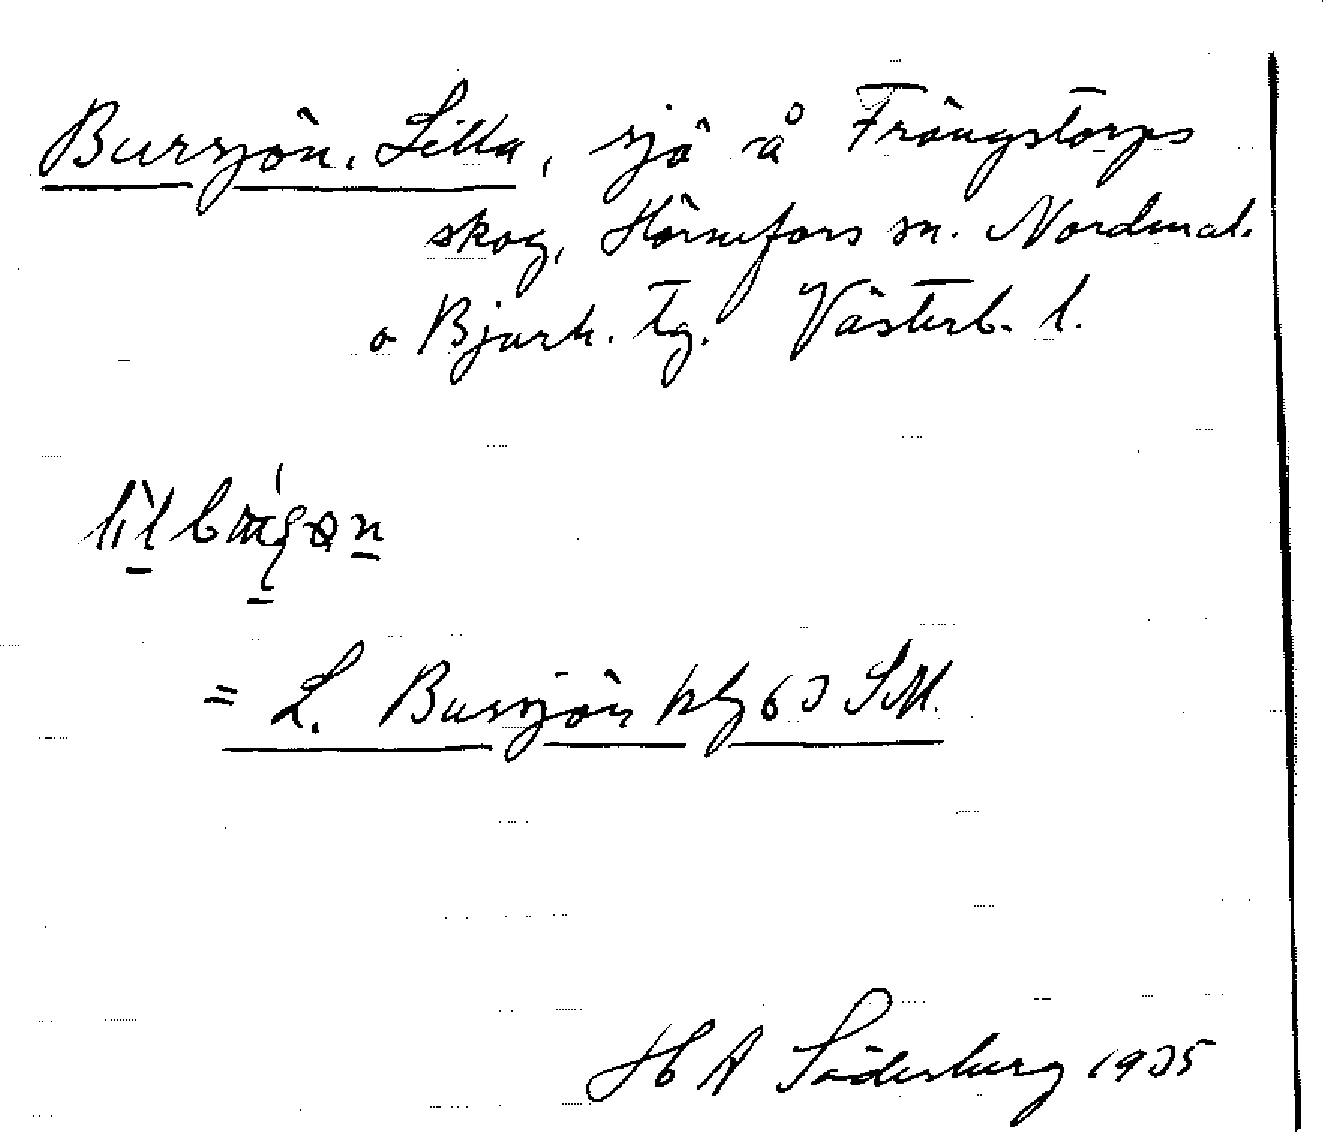 Bursjön, Lilla, sjö å Frängstorps
skog, Hörnefors sn. Nordmal.
o Bjurh. tg. Västerb. l.
= L. Bursjön kbl 63 SM.
H A Söderberg 1935